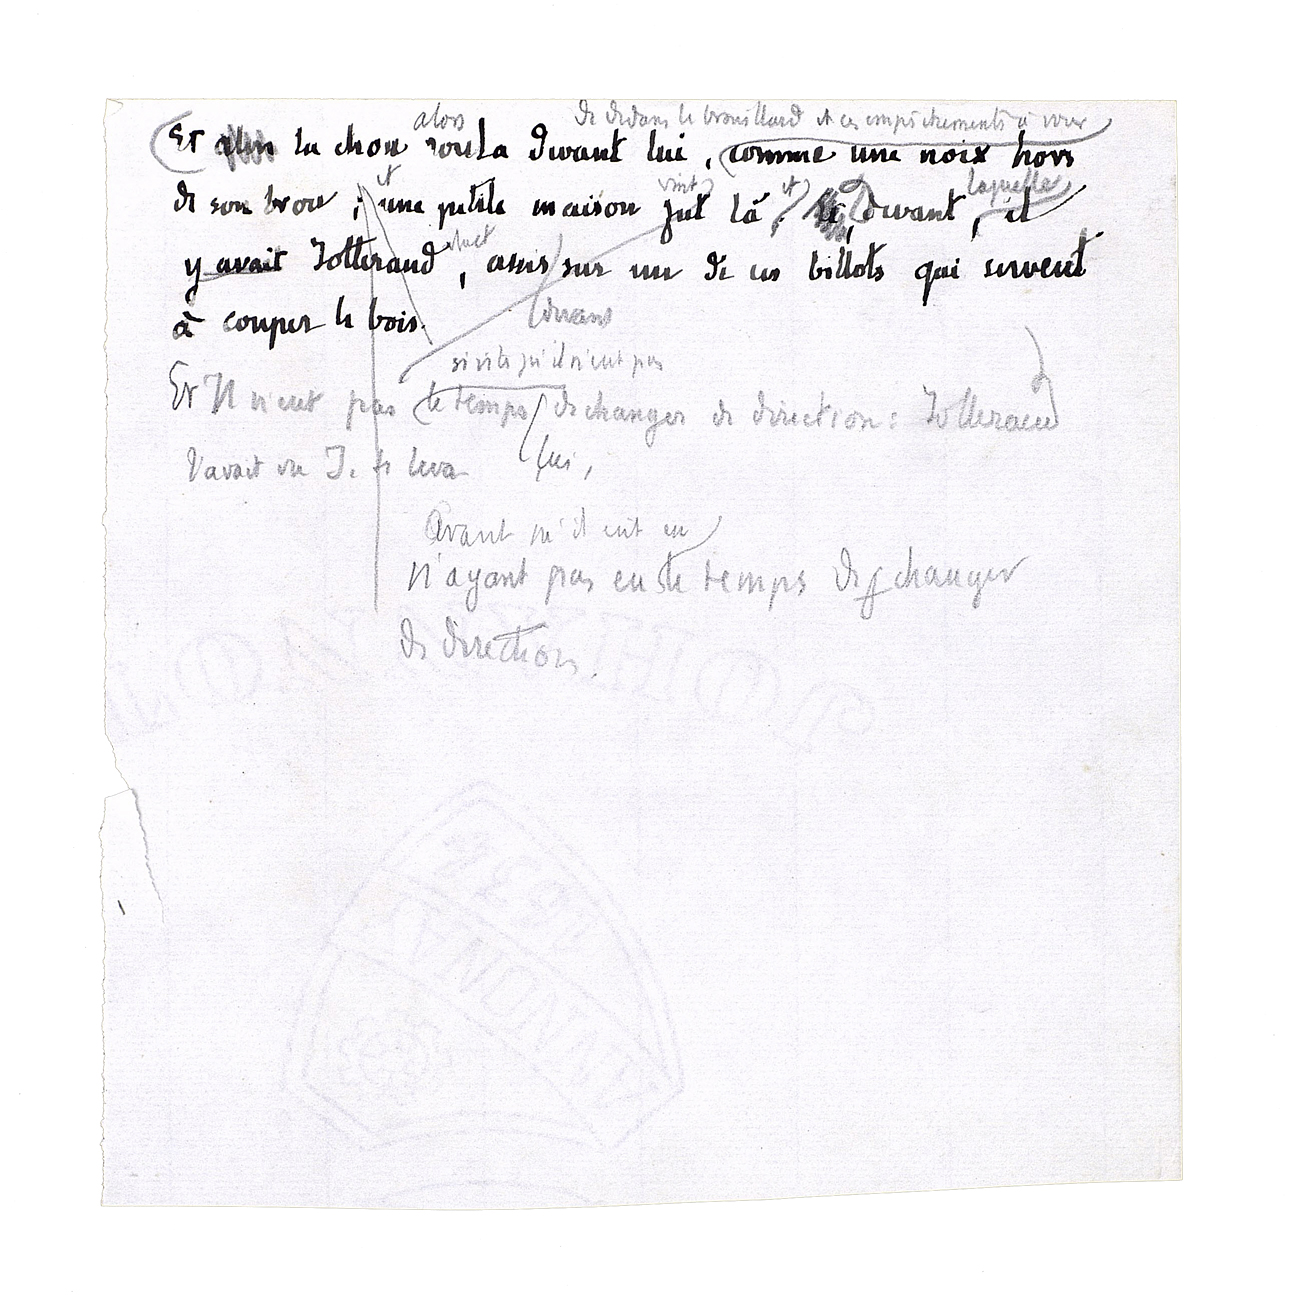 alors de dedans le brouillard et ces empêchements à voir
Et alors la chose roula devant lui, comme une noix hors
et vint et laquelle
de son brou ; une petite maison fut là, devant, il
y avait Tolleraud, assis sur un de ces billots qui servent
à couper le bois.
devant
si vite qu'il n'eut pas
Et Il n'eut pas le temps de changer de direction : Tolleraud
l'avait vu T. se leva lui,
Avant qu'il eut eu
n'ayant pas eu le temps de changer
de direction.